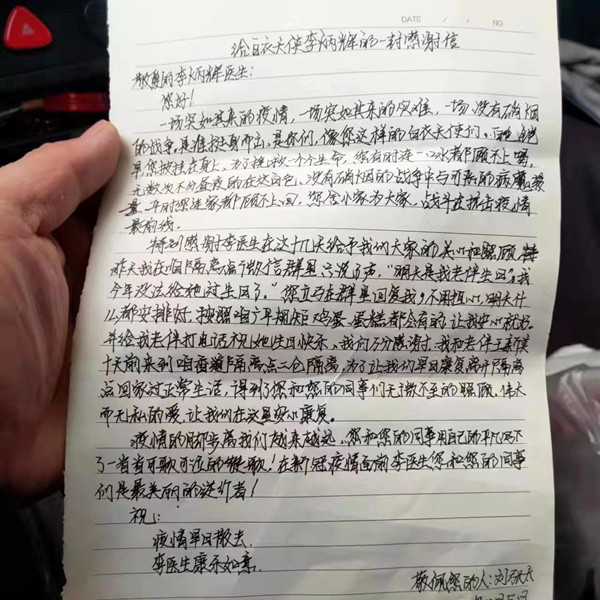 DATE / / NO
给白衣天使李炳辉的一封感谢信
敬爱的李炳辉医生:
您好!
一场突如其来的疫情,一场突如其来的灾难,一场没有硝烟
的战争,是谁挺身而出,是你们,像您这样的白衣天使们。
早,您披挂在身上,为了挽救一个个生命,您有时连一口水都顾不上喝,
无数次不分昼夜的在这白色、没有硝烟的战争中与可恶的病魔
量,平时您连家都顾不上回,您舍小家为大家,战斗在抗击疫情
最前线。
特别感谢李医生在这十几天给予我们大家的关心和照顾,特
昨天我在咱隔离点微信群里只说了声,“明天是我老伴生日,我
今年没法给她过生日了。”您立马在群里回复我,不用担心,明天什
么都安排好,按照咱,鸡蛋、蛋糕都会有的,让我安心就好。
并给我老伴打电话祝她生日快乐,我们万分感谢,我和老伴
十天前来到咱隔离点二仓隔离,为了让我们早日康复离开隔离
点回家过正常生活,得到了您和您的同事们无微不至的照顾,伟大
而无私的爱,让我们在这里安心康复。
疫情的脚步离我们越来越远,您和您的同事用自己的平凡写下
了一首首可歌可泣的赞歌!在新冠疫情面前李医生您和您的同事
们是最美丽的逆行者!
祝:
疫情早日散去
李医生康乐如意
敬佩您的人:刘